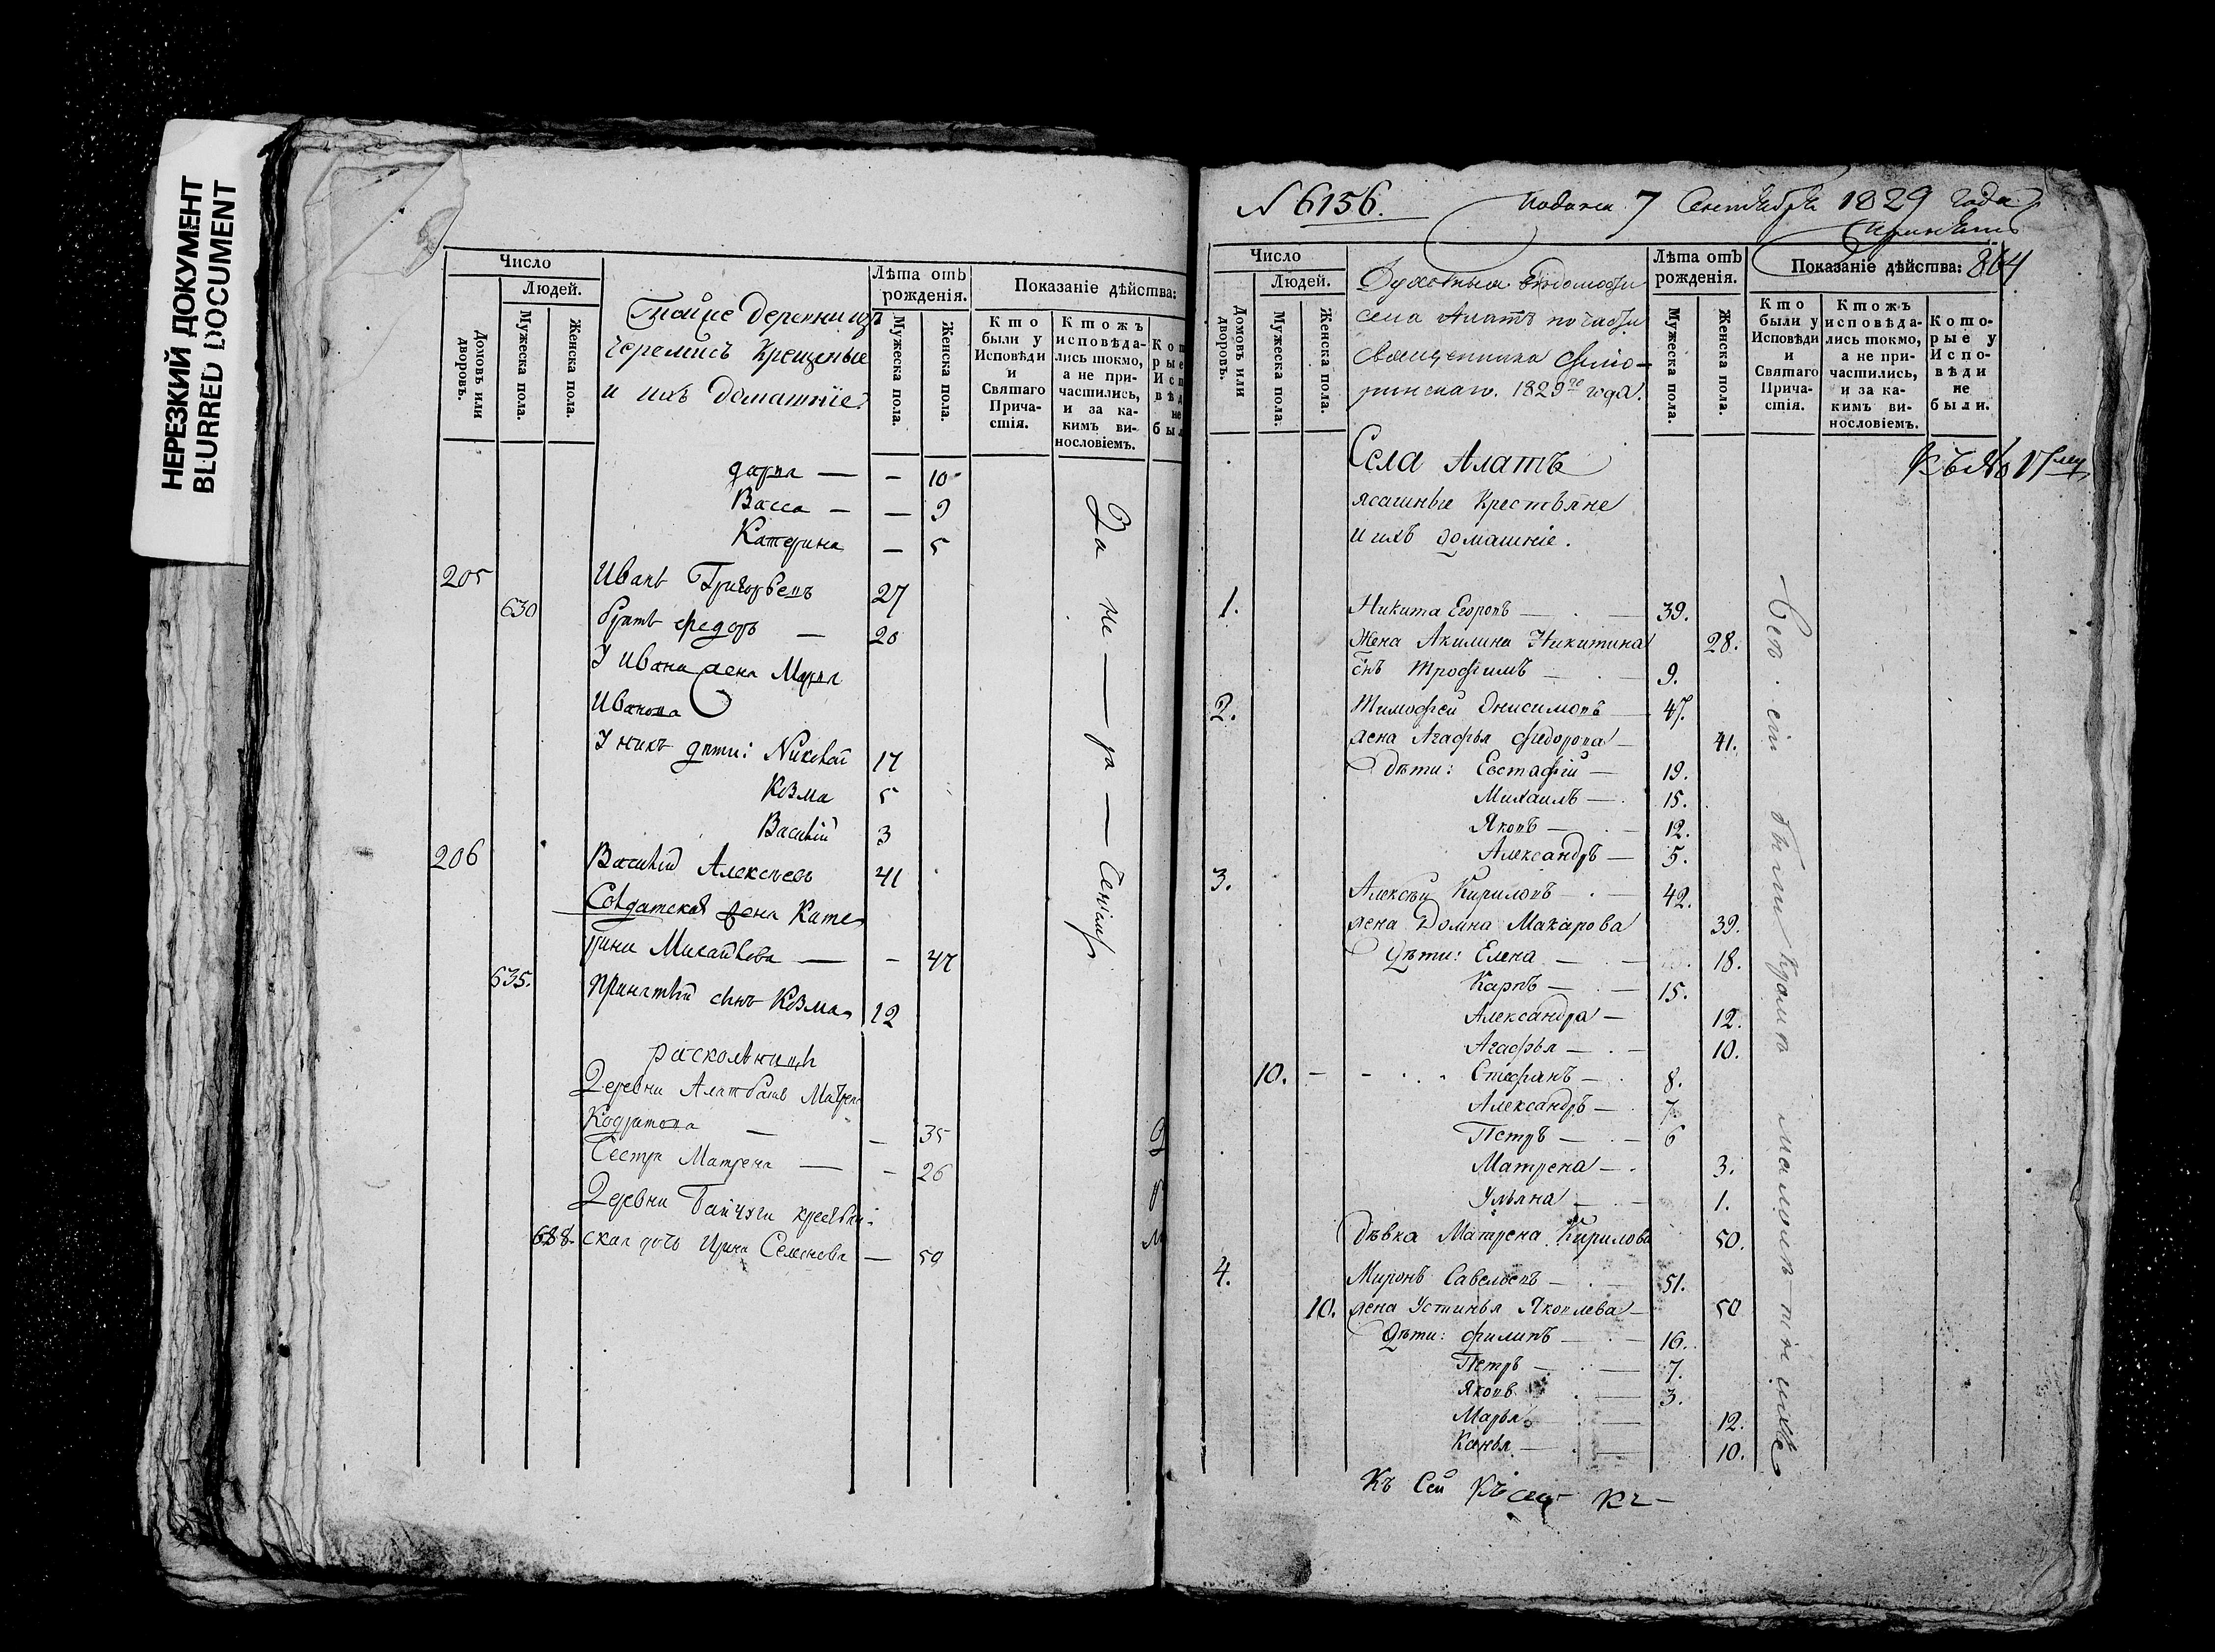 НЕРЕЗКИЙ ДОКУМЕНТ
BLURRED DOCUMENT
Число
Людей.
Домовъ или дворовъ.
Мужеска пола.
Женска пола.
Тойже деревни изъ
черемисъ крещеные
и ихъ домашніе.
Лѣта отъ рожденія.
Мужеска пола.
Женска пола.
Показаніе дѣйства:
Кто были у Исповѣди и Святаго Причастія.
Ктожъ исповѣдались токмо, а не причастились, и за какимъ винословіемъ.
дарья — — 10
Васса — — 9
Катерина — 5
205 Иванъ Григорьевъ 27
630 братъ Федоръ — 20
У Ивана жена Марья
Иванова
У нихъ дѣти: Николай 17
Козма 5
Василій 3
206 Василій Алексѣевъ 41
Солдатская жена Кате
рина Михайлова — — 47
635. Принятый сынъ Козма 12
раскольницы
Деревни
— — 35
Сестра Матрена — — 26
Деревни
638. ская дочь Ирина Семенова — 50
За не — ра — сеніемъ
N 6156. Подана 7 Сентября 1829 года
864
Число
Людей.
Домовъ или дворовъ.
Мужеска пола.
Женска пола.
Духовныя вѣдомости
села Алатъ по части
Священника
1829го года.
Лѣта отъ рожденія.
Мужеска пола.
Женска пола.
Показаніе дѣйства:
Кто были у Исповѣди и Святаго Причастія.
Ктожъ исповѣдались токмо, а не причастились, и за какимъ винословіемъ.
Которые у Исповѣди не были.
Села Алатъ
ясашные крестьяне
и ихъ домашніе.
1. Никита Егоровъ — . — 39.
Жена Акилина Никитина 28.
снъ Трофимъ — . — 9.
2. Тимофей Онисимовъ — 47.
жена Агафья Федорова — 41.
Дѣти: Евстафій — 19.
Михаилъ — . 15.
Яковъ — . — 12.
Александръ — 5.
3. Алексѣй Кириловъ — . — 42.
жена Домна Макарова 39.
Дѣти: Елена — . — 18.
Карпъ — . — 15.
Александра — 12.
Агафья — . — 10.
10. — — . . Стефанъ — . 8.
Александръ — . 7
Петръ — . — 6
Матрена — . 3.
Ульяна — . — 1.
дѣвка Матрена Кирилова 50.
4. Миронъ Савельевъ — . — 51.
10. жена Устинья Яковлева — 50
Дѣти: Филипъ — . — 16.
Петръ — . — 7.
Яковъ . — 3.
Марья — 12.
— . — 10.
Всѣ сіи были кромѣ малолѣтнихъ
Къ Сей